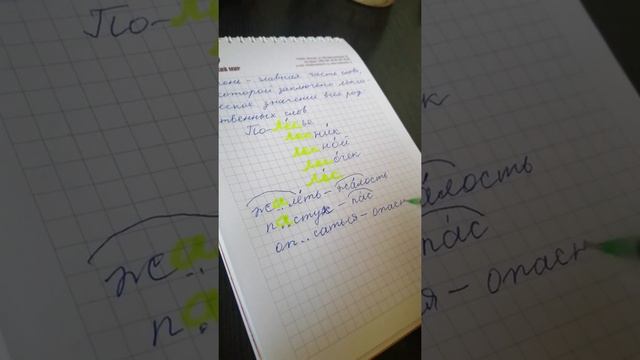 ИЙ МИР
рень - главная часть слова,
которой заключено лекси-
ческое значении всех род
ственных слов
По-ле́сье
лесни́к
лесно́й
лесо́чек
лес
жале́ть - жа́лость
пасту́х - па́с
оп..саться - опасн